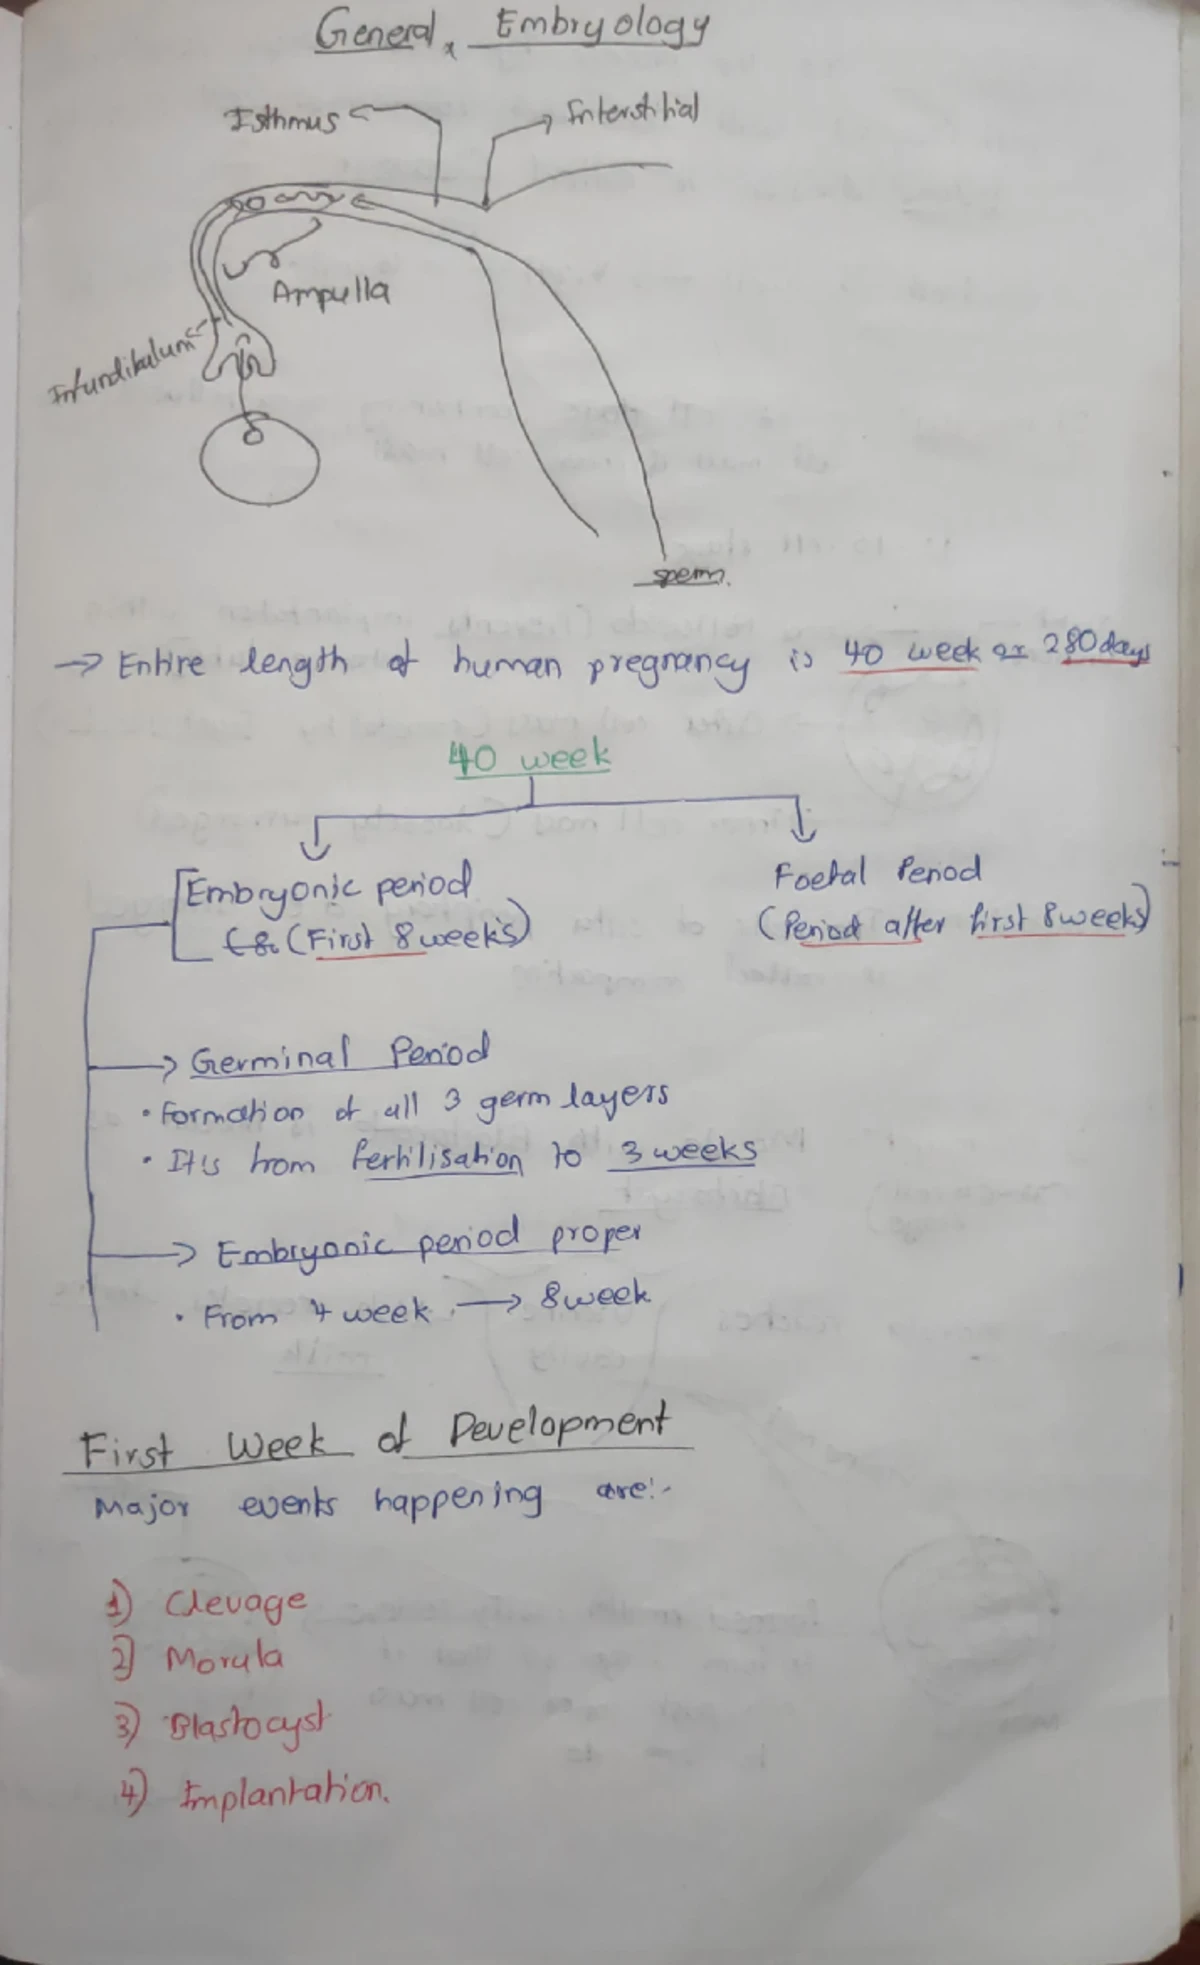 General Embryology
Isthmus
Interstitial
Ampulla
Infundibulum
sperm.
→ Entire length of human pregnancy is 40 week or 280 days
40 week
Embryonic period
(First 8 weeks)
Foetal Period
(Period after first 8 weeks)
→ Germinal Period
• Formation of all 3 germ layers
• It is from fertilisation to 3 weeks
→ Embryonic period proper
• From 4 week → 8 week
First Week of Development
Major events happening are:-
1) Clevage
2) Morula
3) Blastocyst
4) Implantation.